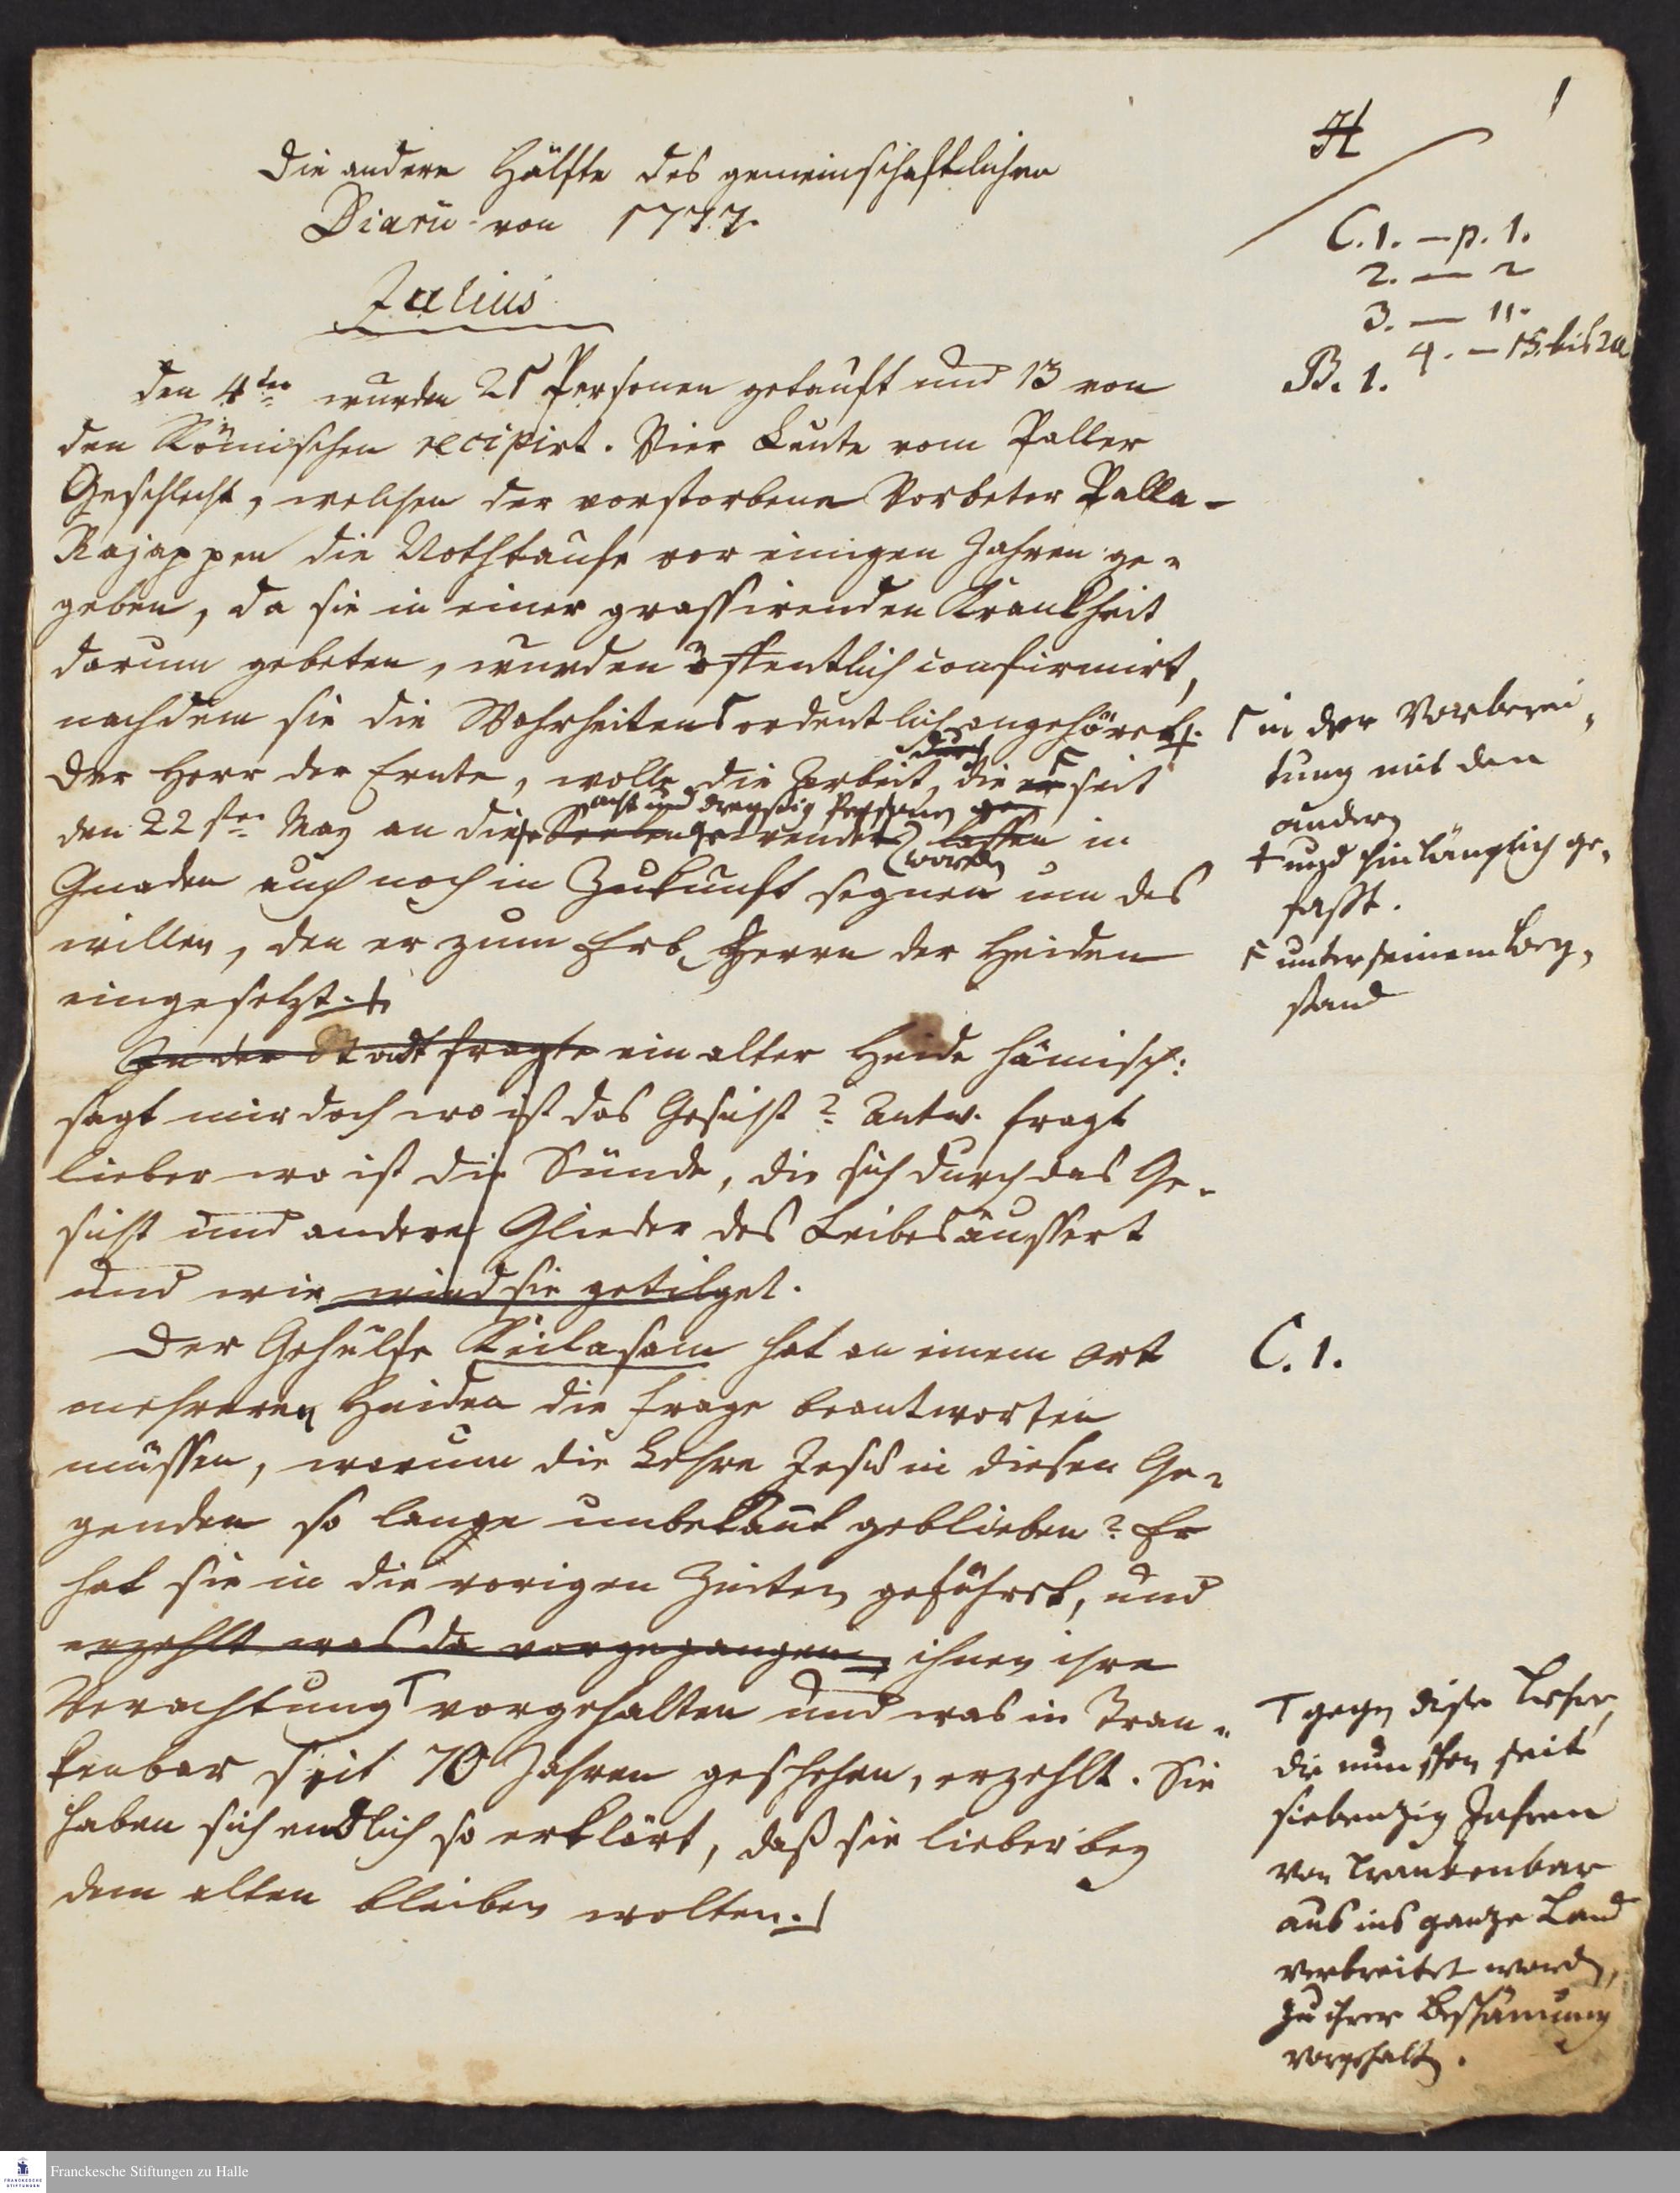 1
H
Die andere Hälfte des gemeinschaftlichen
Diarii von 1777.
C. 1. — p. 1.
2. — 2
3. — 11.
4. — 15. bis 20
Julius
B. 1.
den 4ten wurden 25 Personen getauft und 13 von
den Römischen recipirt. Vier Leute vom Paller
Geschlecht, welchen der verstorbene Vorbeter Palla-
Rajappen die Nothtaufe vor einigen Jahren ge-
geben, da sie in einer grassirenden Krankheit
darum gebeten, wurden öffentlich confirmirt,
nachdem sie die Wahrheiten ordentlich angehöret.
in der Vorberei-
tung mit den
andern
Der Herr der Ernte, wolle die Arbeit, die er seit
acht und dreyßig Personen
den 22sten May an diese Seelen wenden lassen in
worden
Gnaden auch noch in Zukunft segnen um des
und hinlänglich ge-
faßt.
willen, den er zum Erb Herrn der Heiden
unter seinem Bey-
stand
eingesetzt.
In der Stadt fragte ein alter Heide hämisch:
sagt mir doch wo ist das Gesicht? Antw. fragt
lieber wo ist die Sünde, die sich durch das Ge-
sicht und andere Glieder des Leibes äussert
und wie wird sie getilget.
Der Gehülfe Keilasam hat an einem Ort
C. 1.
mehreren Heiden die Frage beantworten
müssen, warum die Lehre Jesu in diesen Ge-
genden so lange unbekañt geblieben? Er
hat sie in die vorigen Zeiten geführet, und
erzehlt was da vorgegangen, ihnen ihre
Verachtung vorgehalten und was in Tran-
kenbar seit 70 Jahren geschehen, erzehlt. Sie
haben sich endlich so erklärt, daß sie lieber bey
dem alten bleiben wolten.
gegen diese Lehre,
die nun schon seit
siebenzig Jahren
von Trankenbar
aus ins ganze Land
verbreitet worden,
zu ihrer Beschämung
vorgehalten.
Franckesche Stiftungen zu Halle